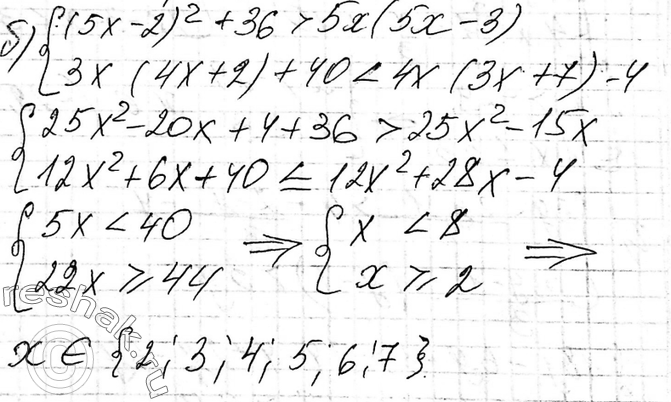 б) { (5x-2)² + 36 > 5x(5x-3)
3x (4x+2) + 40 < 4x (3x+7) - 4
{ 25x² - 20x + 4 + 36 > 25x² - 15x
12x² + 6x + 40 ≤ 12x² + 28x - 4
{ 5x < 40 ⇒ { x < 8 ⇒
22x ≥ 44 x ≥ 2
x ∈ {2; 3; 4; 5; 6; 7}
reshak.ru